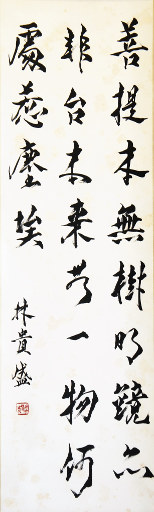 菩提本無樹明鏡亦
非台本来無一物何
處惹塵埃
林貴盛